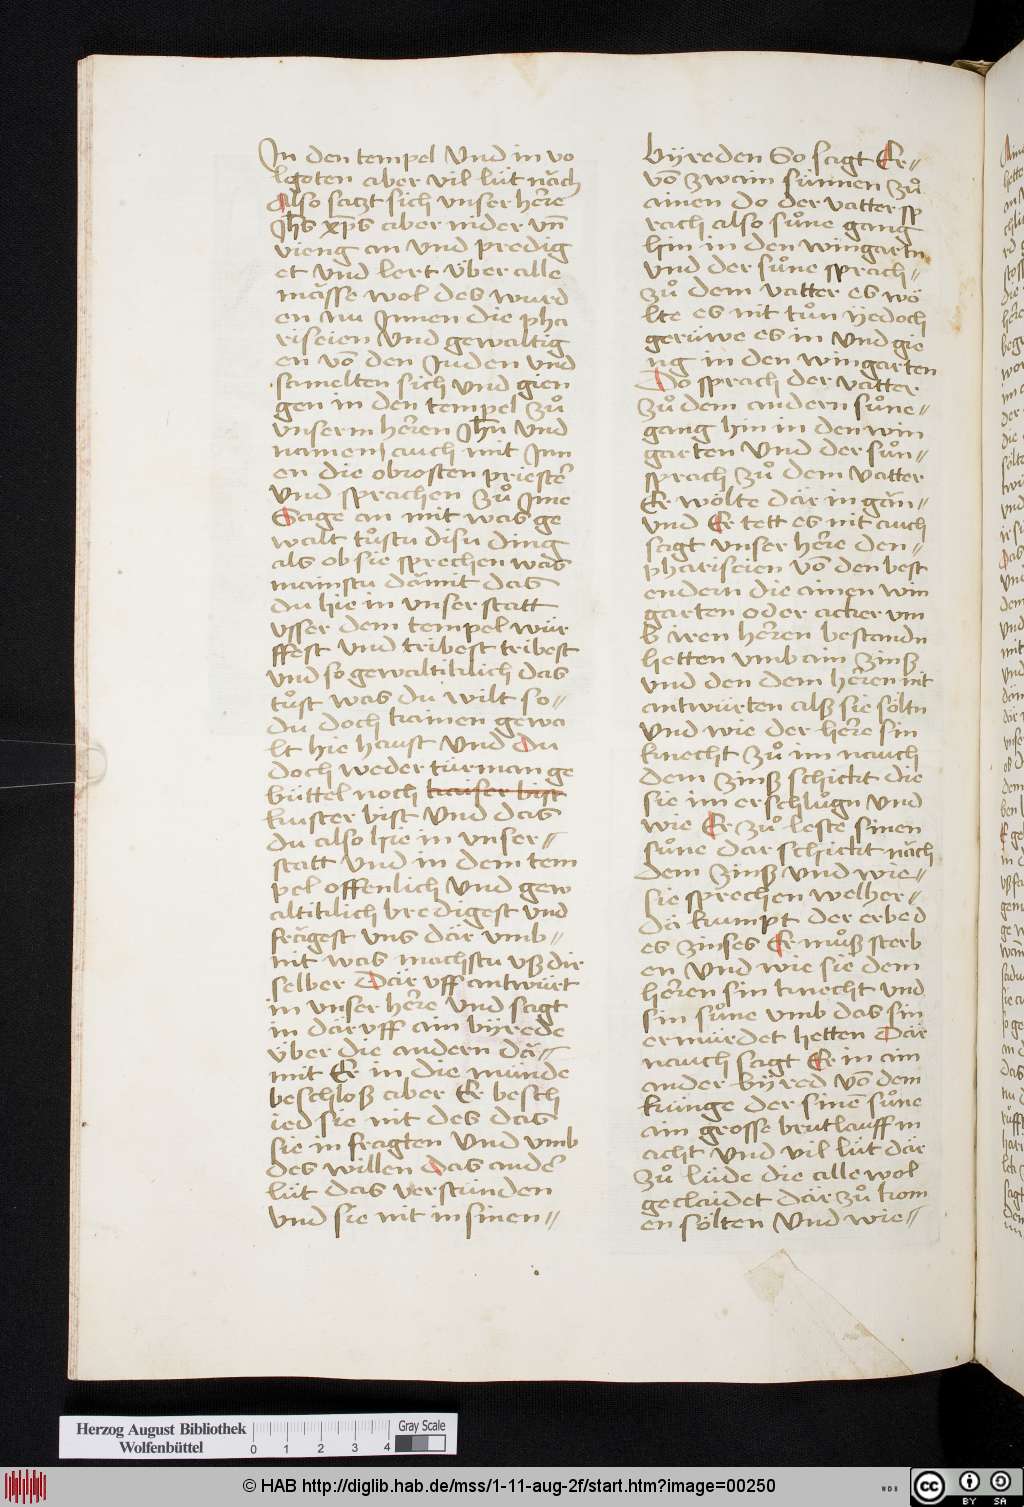 In den tempel Vnd in vo
lgoten aber vil lüt nǎch
Also saczt sich vnser herre
Jħs xp̄s aber nider vn̄
vieng an vnd predig
et vnd lert über alle
mǎsse wol des wurd
en nu Jnnen die pha
riseien Vnd gewaltig
en vō den Juden vnd
samelten sich vnd gien
gen in den tempel zů
vnserm herren Jħn Vnd
namen auch mit Jnn
en die obrosten priester
Vnd sprachen zů Jme
Sage an mit was ge
walt tůstu disu ding
als ob sie sprechen was
mainstu dǎmit das
du hie in vnser statt
vsser dem tempel wür
ffest vnd tribest tribest
vnd so gewaltiklich das
tůst was du wilt so〃
du doch kainen gewa
lt hie haust Vnd Du
doch weder türman ge
büttel noch kaiser bist
kuster bist Vnd das
du also hie in vnser〃
statt Vnd in dem tem
pel offenlich Vnd gew
altiklich bredigest vnd
frǎgest vns dǎr vmb〃
nit was machstu vß dir
selber Dǎr vff antwürt
in vnser herre Vnd sagt
in dǎr vff ain byrede
über die andern dǎ〃
mit Er in die münde
beschloß aber Er besch
ied sie nit des das
sie in fragten Vnd vmb
des willen das ander
lüt das verstünden
Vnd sie nit in sinen〃
byreden So sagt Er〃
vō zwain sünnen zů
ainen do der vatter sp
rach also sůne gang
hin in den wingartn
vnd der sůne sprach〃
zů dem vatter es wö
lte es nit tůn yedoch
gerüwe es in Vnd gie
ng in den wingarten
Do sprach der vatter
zů dem andern sůne〃
gang hin in den win
garten Vnd der sůn〃
sprach zů dem Vatter
Er wölte dǎr in gǎn〃
vnd Er tett es nit auch
sagt vnser herre den〃
phariseien vō den best
endern die ainen win
garten oder acker vm
b iren herren bestandn
hetten vmb ain zinß
vnd den dem herren nit
antwürten alß sie söltn
Vnd wie der herre sin
knecht zů im nauch
dem zinß schickt die
sie im erschlůgn Vnd
wie Er zů leste sinen
sůne dar schickt nǎch
dem zinß Vnd wie〃
sie sprechen welher〃
dǎ kumpt der erbed
es zinses Er můß sterb
en Vnd wie sie dem
herren sin knecht Vnd
sin sůne vmb das sin
ermürdet hetten Dǎr
nauch sagt Er in ain
ander byred vō dem
künge der sinē sůne
ain grosse brutlauff m
acht Vnd vil lüt dǎr
zů lüde die alle wol
geclaidet dǎr zů kom
en sölten Vnd wie〃
Herzog August Bibliothek
Wolfenbüttel
0 1 2 3 4
Gray Scale
© HAB http://diglib.hab.de/mss/1-11-aug-2f/start.htm?image=00250
WDB
cc BY SA